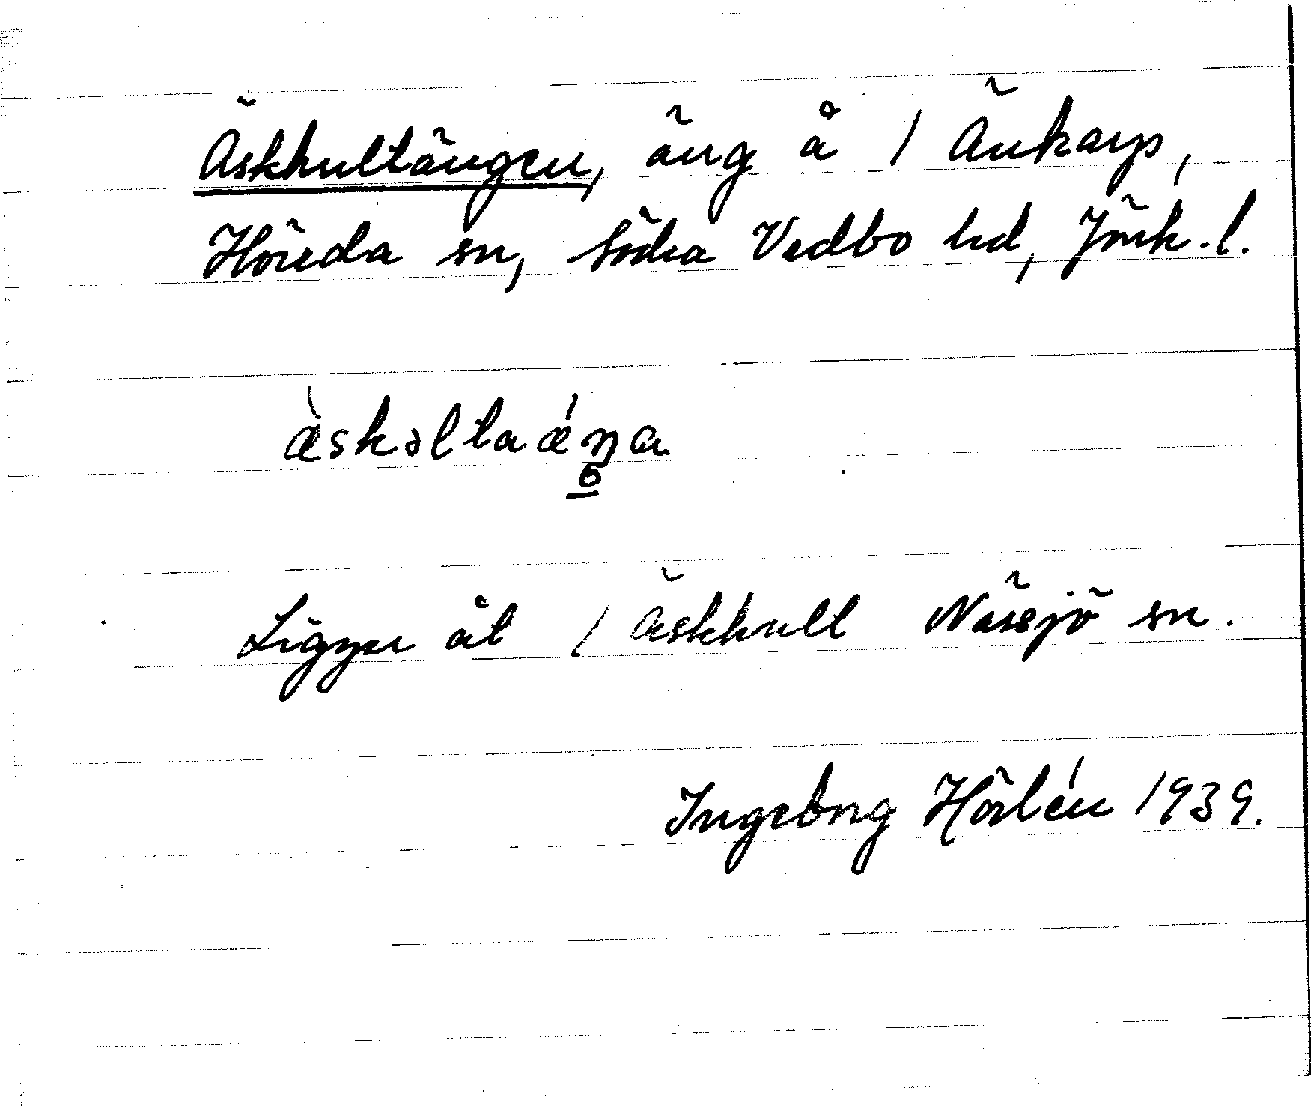 Äskhultängen, äng å / Änkarp,
Höreda sn, Södra Vedbo hd, Jönk. l.
æ̀skəltaǽŋa
Ligger åt / Äskhult Nässjö sn.
Ingeborg Hörlén 1939.